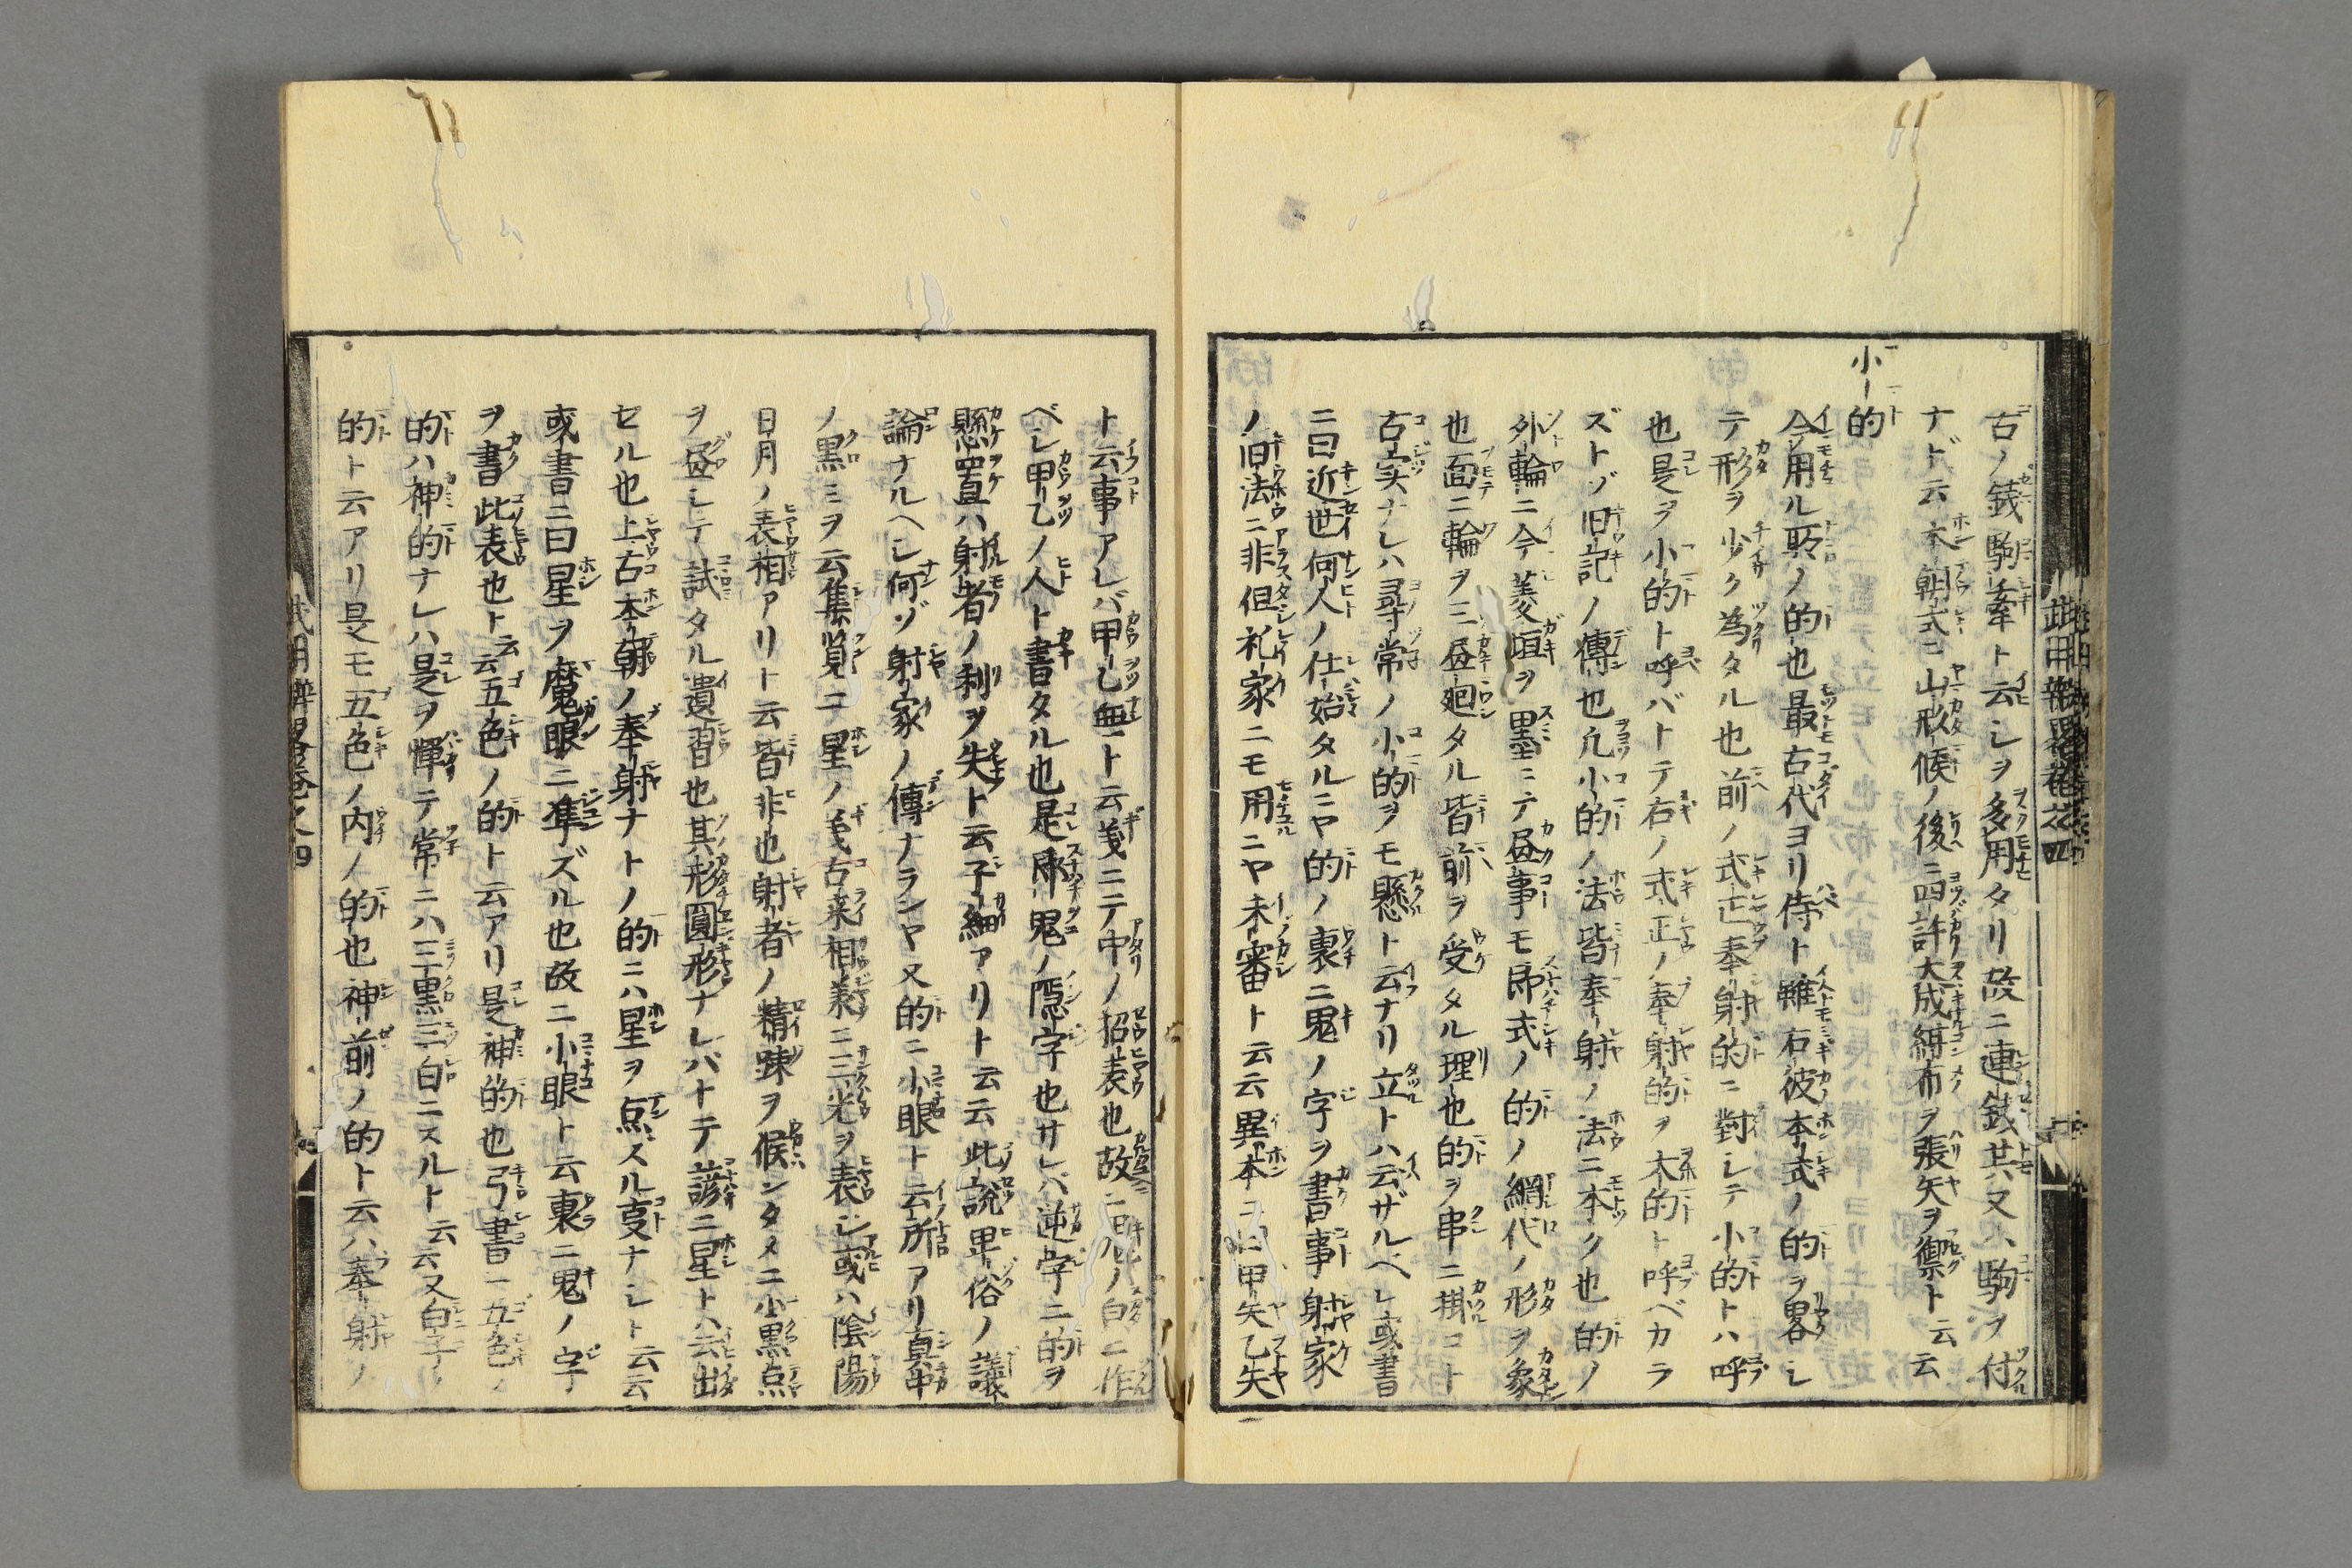 古ノ銭駒牽ト云シヲ多用タリ故ニ連銭其又ハ駒ヲ付
ナド云本朝式ニ山形候ノ後ニ四許大成紺布ヲ張矢ヲ禦ト云云
小的
今用ル所ノ的也最古代ヨリ侍ト雖右彼本式ノ的ヲ畧シ
テ形ヲ少ク為タル也前ノ式正奉射的ニ對シテ小的トハ呼
也是ヲ小的ト呼バトテ右ノ式正ノ奉射的ヲ大的ト呼ベカラ
ズトゾ旧記ノ傳也凡小的ノ法皆奉射ノ法ニ本ク也的ノ
外輪ニ今菱垣ヲ墨ニテ昼事モ即式ノ的ノ網代ノ形ヲ象
也面ニ輪ヲ三昼廻タル皆前ヲ受タル理也的ヲ串ニ掛コト
古実ナレハ尋常ノ小的ヲモ懸ト云ナリ立トハ云ザルベシ或書
ニ曰近世何人ノ仕始タルニヤ的ノ裏ニ鬼ノ字ヲ書事射家
ノ旧法ニ非但礼家ニモ用ニヤ未審ト云云異本ニ曰甲矢乙矢
ト云事アレバ甲乙無ト云義ニテ中ノ招表也故ニ鬼ノ白ニ作
ベシ甲乙ノ人ト書タル也是即鬼ノ隠字也サレバ逆字ニ的ヲ
懸置ハ射者ノ利ヲ失ト云子細アリト云云此説卑俗ノ議
論ナルヘシ何ゾ射家ノ傳ナランヤ又的ニ小眼ト云所アリ真中
ノ黒ミヲ云集覧ニ星ノ義古来相兼ニ三光ヲ表シ或ハ陰陽
日月ノ表相アリト云皆非也射者ノ精踈ヲ候ンタメニ小黒点
ヲ昼シテ試タル遺習也其形圓形ナレバトテ諺ニ星トハ云出
セル也上古本朝ノ奉射ナトノ的ニハ星ヲ点スル㕝ナシト云云
或書ニ曰星ヲ魔眼ニ準ズル也故ニ小眼ト云裏ニ鬼ノ字
ヲ書此表也ト云云五色ノ的ト云アリ是神的也弓書ニ五色ノ
的ハ神的ナレハ是ヲ憚テ常ニハ三黒三白ニスルト云云又白
的ト云アリ是モ五色ノ内ノ的也神前ノ的ト云ハ奉射ノ
武用辨畧巻之四